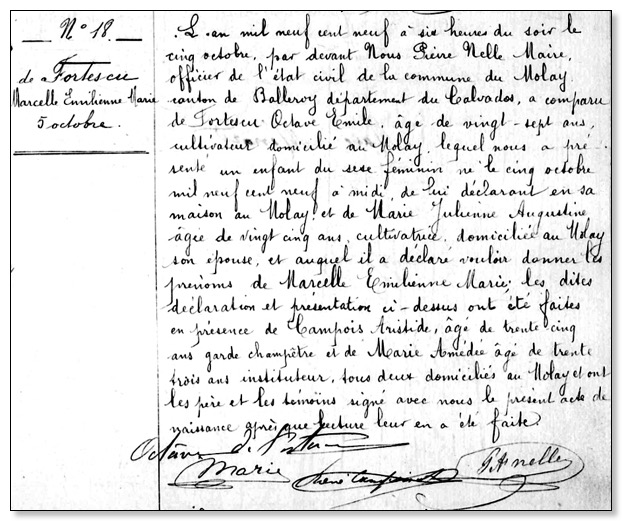 N° 18.
de Fortescu
Marcelle Emilienne Marie
5 octobre.
L'an mil neuf cent neuf à six heures du soir le
cinq octobre, par devant Nous Pierre Nelle Maire,
officier de l'état civil de la commune du Molay
canton de Balleroy département du Calvados, a comparu
de Fortescu Octave Emile, âgé de vingt-sept ans,
cultivateur domicilié au Molay, lequel nous a pré
senté un enfant du sexe féminin né le cinq octobre
mil neuf cent neuf à midi, de lui déclarant en sa
maison au Molay et de Marie Julienne Augustine
âgée de vingt cinq ans, cultivatrice, domiciliée au Molay
son épouse, et auquel il a déclaré vouloir donner les
prénoms de Marcelle Emilienne Marie; les dites
déclaration et présentation ci-dessus ont été faites
en présence de Campois Aristide, âgé de trente cinq
ans garde champêtre et de Marie Amédée âgé de trente
trois ans instituteur, tous deux domiciliés au Molay et ont
les père et les témoins signé avec nous le présent acte de
naissance après que lecture leur en a été faite.
Octave de Fortescu
Marie
P. Nelle